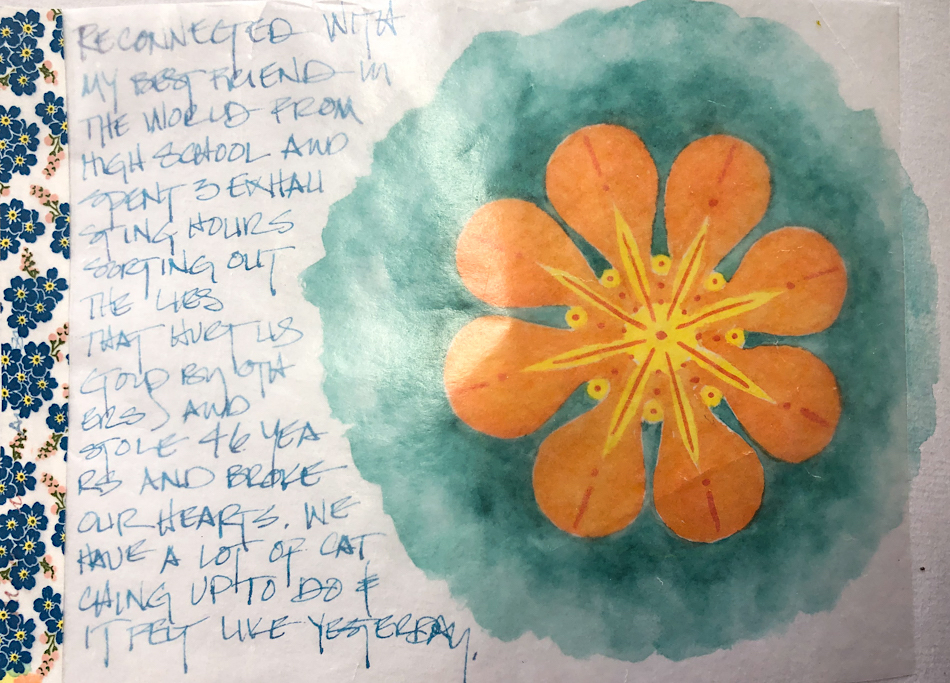 RECONNECTED WITH
MY BEST FRIEND IN
THE WORLD FROM
HIGH SCHOOL AND
SPENT 3 EXHAU
STING HOURS
SORTING OUT
THE LIES
THAT HURT US
(TOLD BY OTH
ERS) AND
STOLE 46 YEA
RS AND BROKE
OUR HEARTS. WE
HAVE A LOT OF CAT
CHING UP TO DO &
IT FELT LIKE YESTERDAY.